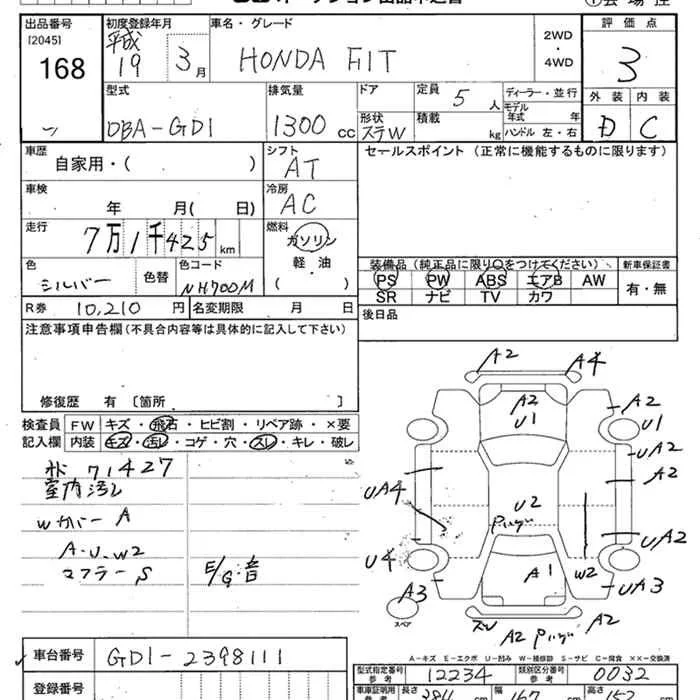 出品番号 初度登録年月 車名・グレード 評価点
[2045] 平成
168 19 3月 HONDA FIT 2WD・4WD 3
型式 排気量 ドア 定員 5人 ディーラー・並行 外装 内装
モデル年式 年
DBA-GD1 1300cc 形状 ステW 積載 kg ハンドル 左・右 D C
車歴 自家用・( ) シフト AT セールスポイント(正常に機能するものに限ります)
車検 年 月( 日) 冷房 AC
走行 7万1千425km 燃料 ガソリン
軽・油
( )
色 シルバー 色替 色コード NH700M 装備品(純正品に限り○をつけてください) 新車保証書
PS PW ABS エアB AW 有・無
SR ナビ TV カワ
R券 10,210円 名変期限 月 日 後日品
注意事項申告欄(不具合内容等は具体的に記入して下さい)
修復歴 有 〔箇所 〕
検査員 FW キズ・飛石・ヒビ割・リペア跡・×要
記入欄 内装 キズ・汚レ・コゲ・穴・スレ・キレ・破レ
71427
室内汚レ
Wカバー A
A・U・W2
マフラー S E/G音
A2 A4
A2 U1 A2 U1
UA2
A2
UA4 U2
UA2
U4 A1 W2
UA3
A3
スペア A2 A2
A-キズ E-エクボ U-凹み W-補修跡 S-サビ C-腐食 ××-交換済
車台番号 GD1-2398111
型式指定番号 参考 12234 類別区分番号 参考 0032
登録番号
車車証明用 参考 長さ 384cm 幅 167 高さ 152